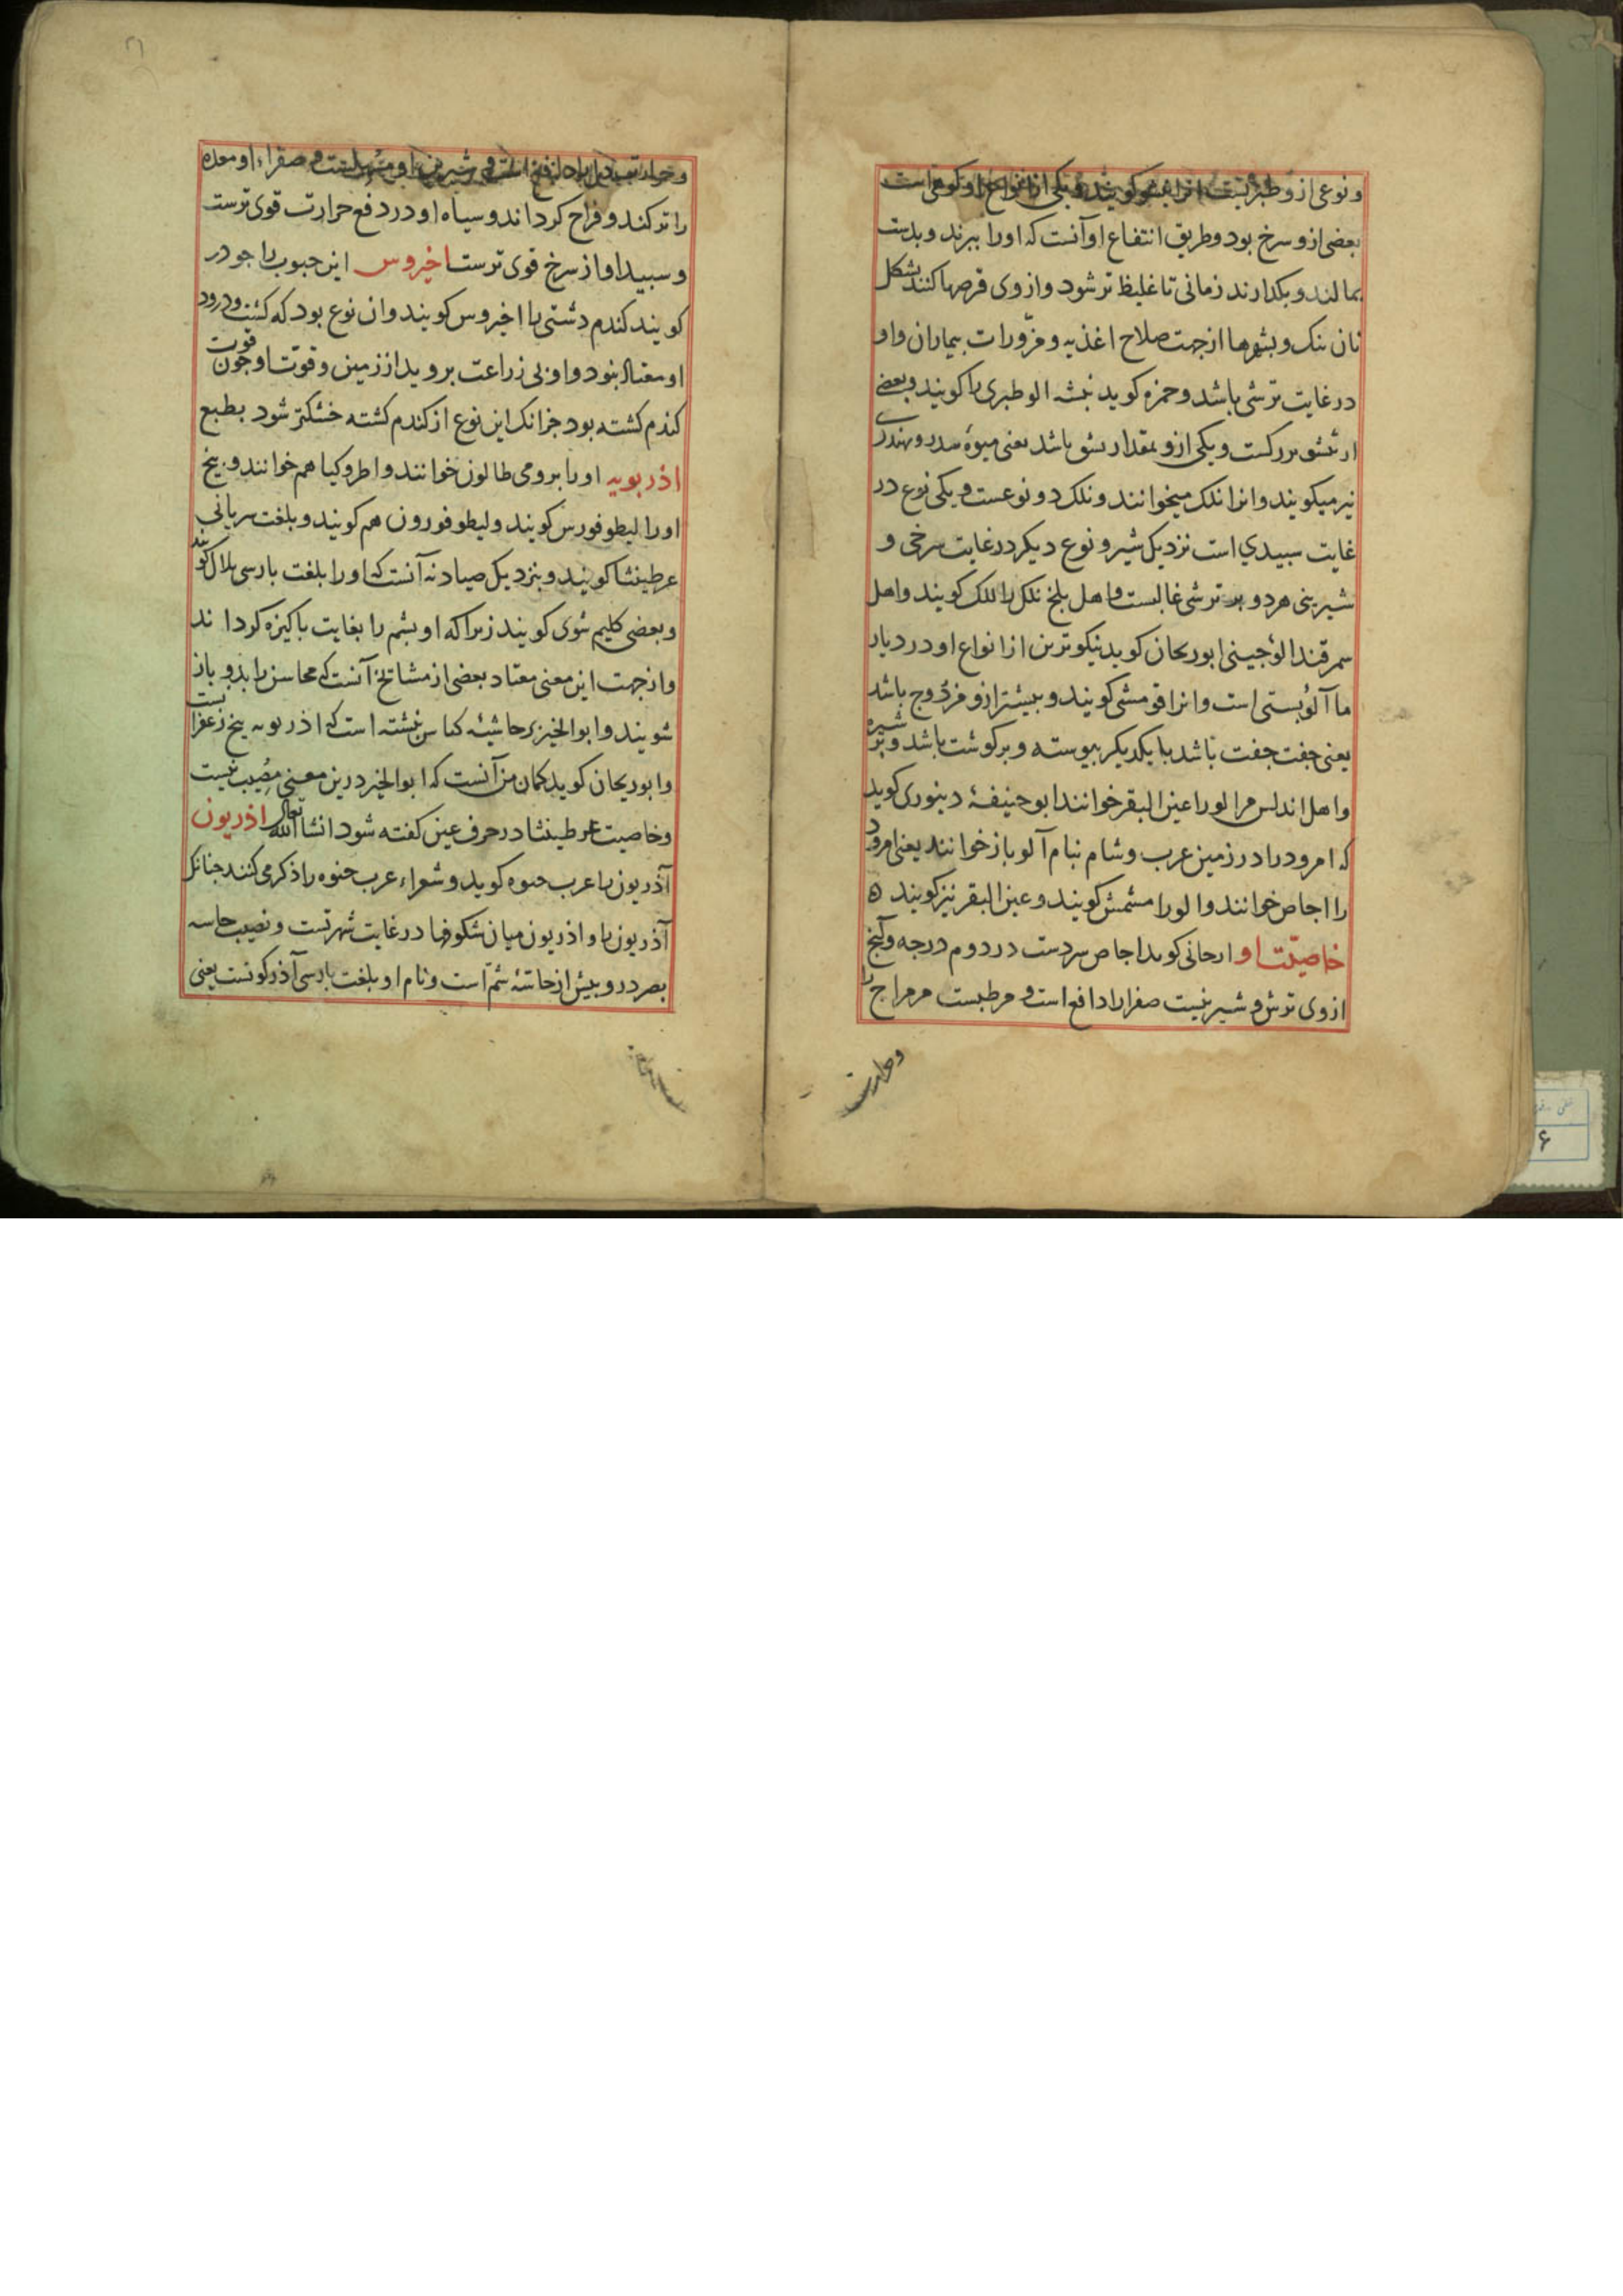 ونوعی ازو طبریست انرا کویند ویکی از انواع او کوهی است
بعضی ازو سرخ بود وطریق انتفاع او آنست که اورا ببرند وبدست
بمالند وبکدارند زمانی تا غلیظ تر شود وازوی قرصها کنند بشکل
نان تنک وبشهرها ازجهت صلاح اغذیه ومزورات بیماران واو
درغایت ترشی باشد وحمزه کوید نبشه الو طبری را کویند وبعضی
ازو بمقدار باشد یعنی میوهٔ
نیز میکویند وانرا نلک میخوانند ونلک دو نوعست ویکی نوع در
غایت سبیدی است نزدیک شیر ونوع دیکر درغایت سرخی و
شیرینی هردو بر ترشی غالبست واهل بلخ نلک را للک کویند واهل
سمرقند الوجینی ابوریحان کوید نیکوترین از انواع او در دیار
ما آلوبستی است وانرا قومشی کویند وبیشتر ازو مزدوج باشد
یعنی جفت جفت باشد با یکدیکر بیوسته وبرکوشت باشد وبر شیره
واهل اندلس مر الورا عین البقر خوانند ابوحنیفهٔ دینوری کوید
که امرود را در زمین عرب وشام بنام آلو باز خوانند یعنی امرود
را اجاص خوانند والورا مشمش کویند وعین البقر نیز کویند ه
خاصیت او ارجانی کوید اجاص سردست در دوم درجه وآنچ
ازوی ترش وشیرینیست صفرارا دافع است ومرطبست مر مزاج را
وحرارت
وحرارت را دافع است وشیرین او مسهلست مر صفراء او معده
را تر کند وفراخ کرداند وسیاه او در دفع حرارت قوی ترست
وسبید او از سرخ قوی ترست اخیروس این حبوب را جو در
کویند کندم دشتی را اخیروس کویند وان نوع بود که کشت ودرود
او معتاد نبود واو بی زراعت بروید از زمین وقوت او چون قوت
کندم کشته بود جزانک این نوع از کندم کشته خشکتر شود بطبع
اذربویه اورا برومی طالون خوانند واطروکیا هم خوانند وبیخ
اورا لیطوفورس کویند ولیطوفورون هم کویند وبلغت سریانی
عرطینثا کویند وبنزدیک صیادنه آنست که اورا بلغت بارسی بلال کویند
وبعضی کلیم شوی کویند زیرا که او بشم را بغایت باکیزه کرداند
وازجهت این معنی معتاد بعضی از مشاتخ آنست که محاسن را بدو باز
شویند وابوالخیر بر حاشیهٔ کناس نبشته است که اذربویه بیخ زعفرا نست
وابوریحان کوید کمان من آنست که ابوالخیر درین معنی مصیب نیست
وخاصیت عرطینثا در حرف عین کفته شود انشا الله تعالی اذریون
آذریون را عرب حنوه کوید وشعراء عرب حنوه را ذکر می کنند جنانک
آذریون را واذریون میان شکوفها درغایت شهرتست ونصیب حاسه
بصر درو بیش از حاسهٔ شم است ونام او بلغت بارسی آذرکونست یعنی